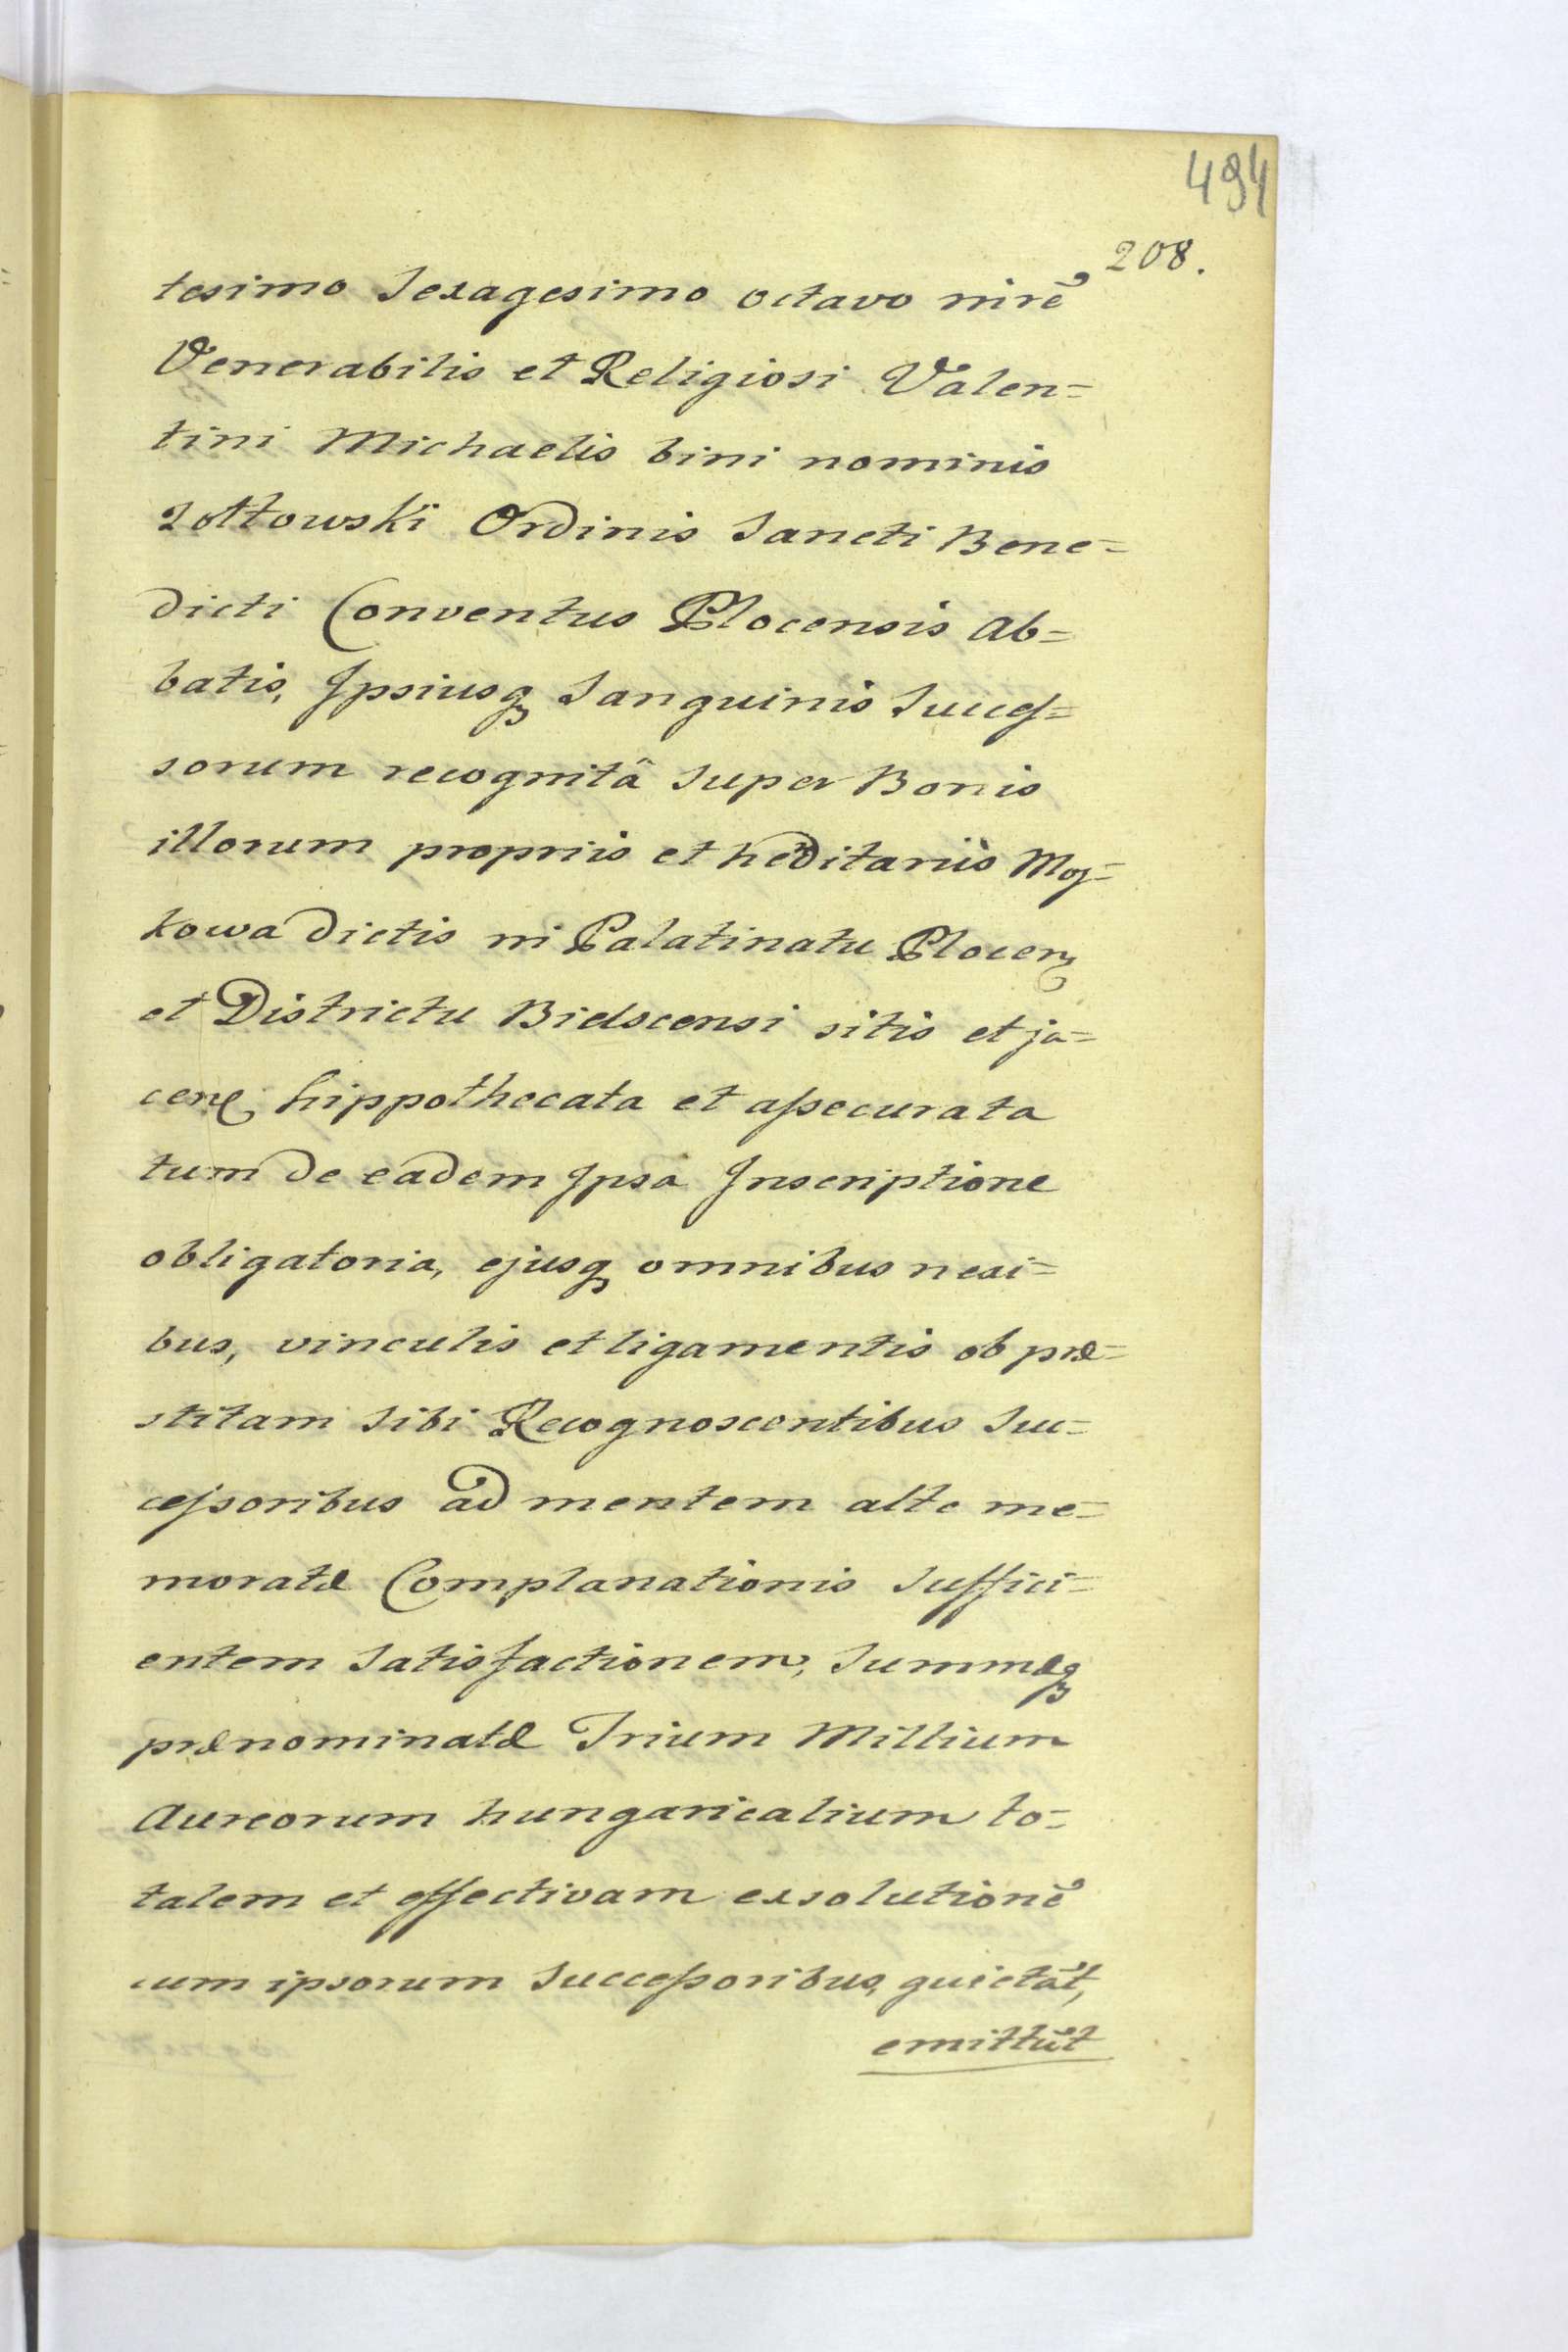 494
208.
tesimo Sexagesimo octavo nirẽ
Venerabilis et Religiosi Valen=
tini Michaelis bini nominis
Zołtowski Ordinis Sancti Bene=
dicti Conventus Plocensis Ab=
batis, Ipsiusq Sanguinis Succes=
sorum recognitâ super Bonis
illorum propriis et hẽditariis Moy=
kowa dictis ni Palatinatu Plocen
et Districtu Bielscensi sitis et ja=
cen hippothecata et assecurata
tum de eadem Ipsa Inscriptione
obligatoria, ejusq omnibus nexi=
bus, vinculis et ligamentis ob præ=
stitam sibi Recognoscentibus Suc=
cessoribus ad mentem alte me=
moratæ Complanationis suffici=
entem satisfactionem, Summæq
prænominatæ Trium Millium
Aureorum hungaricalium to=
talem et effectivam exsolutionẽ
cum ipsorum Successoribus, quietãt,
emittũt